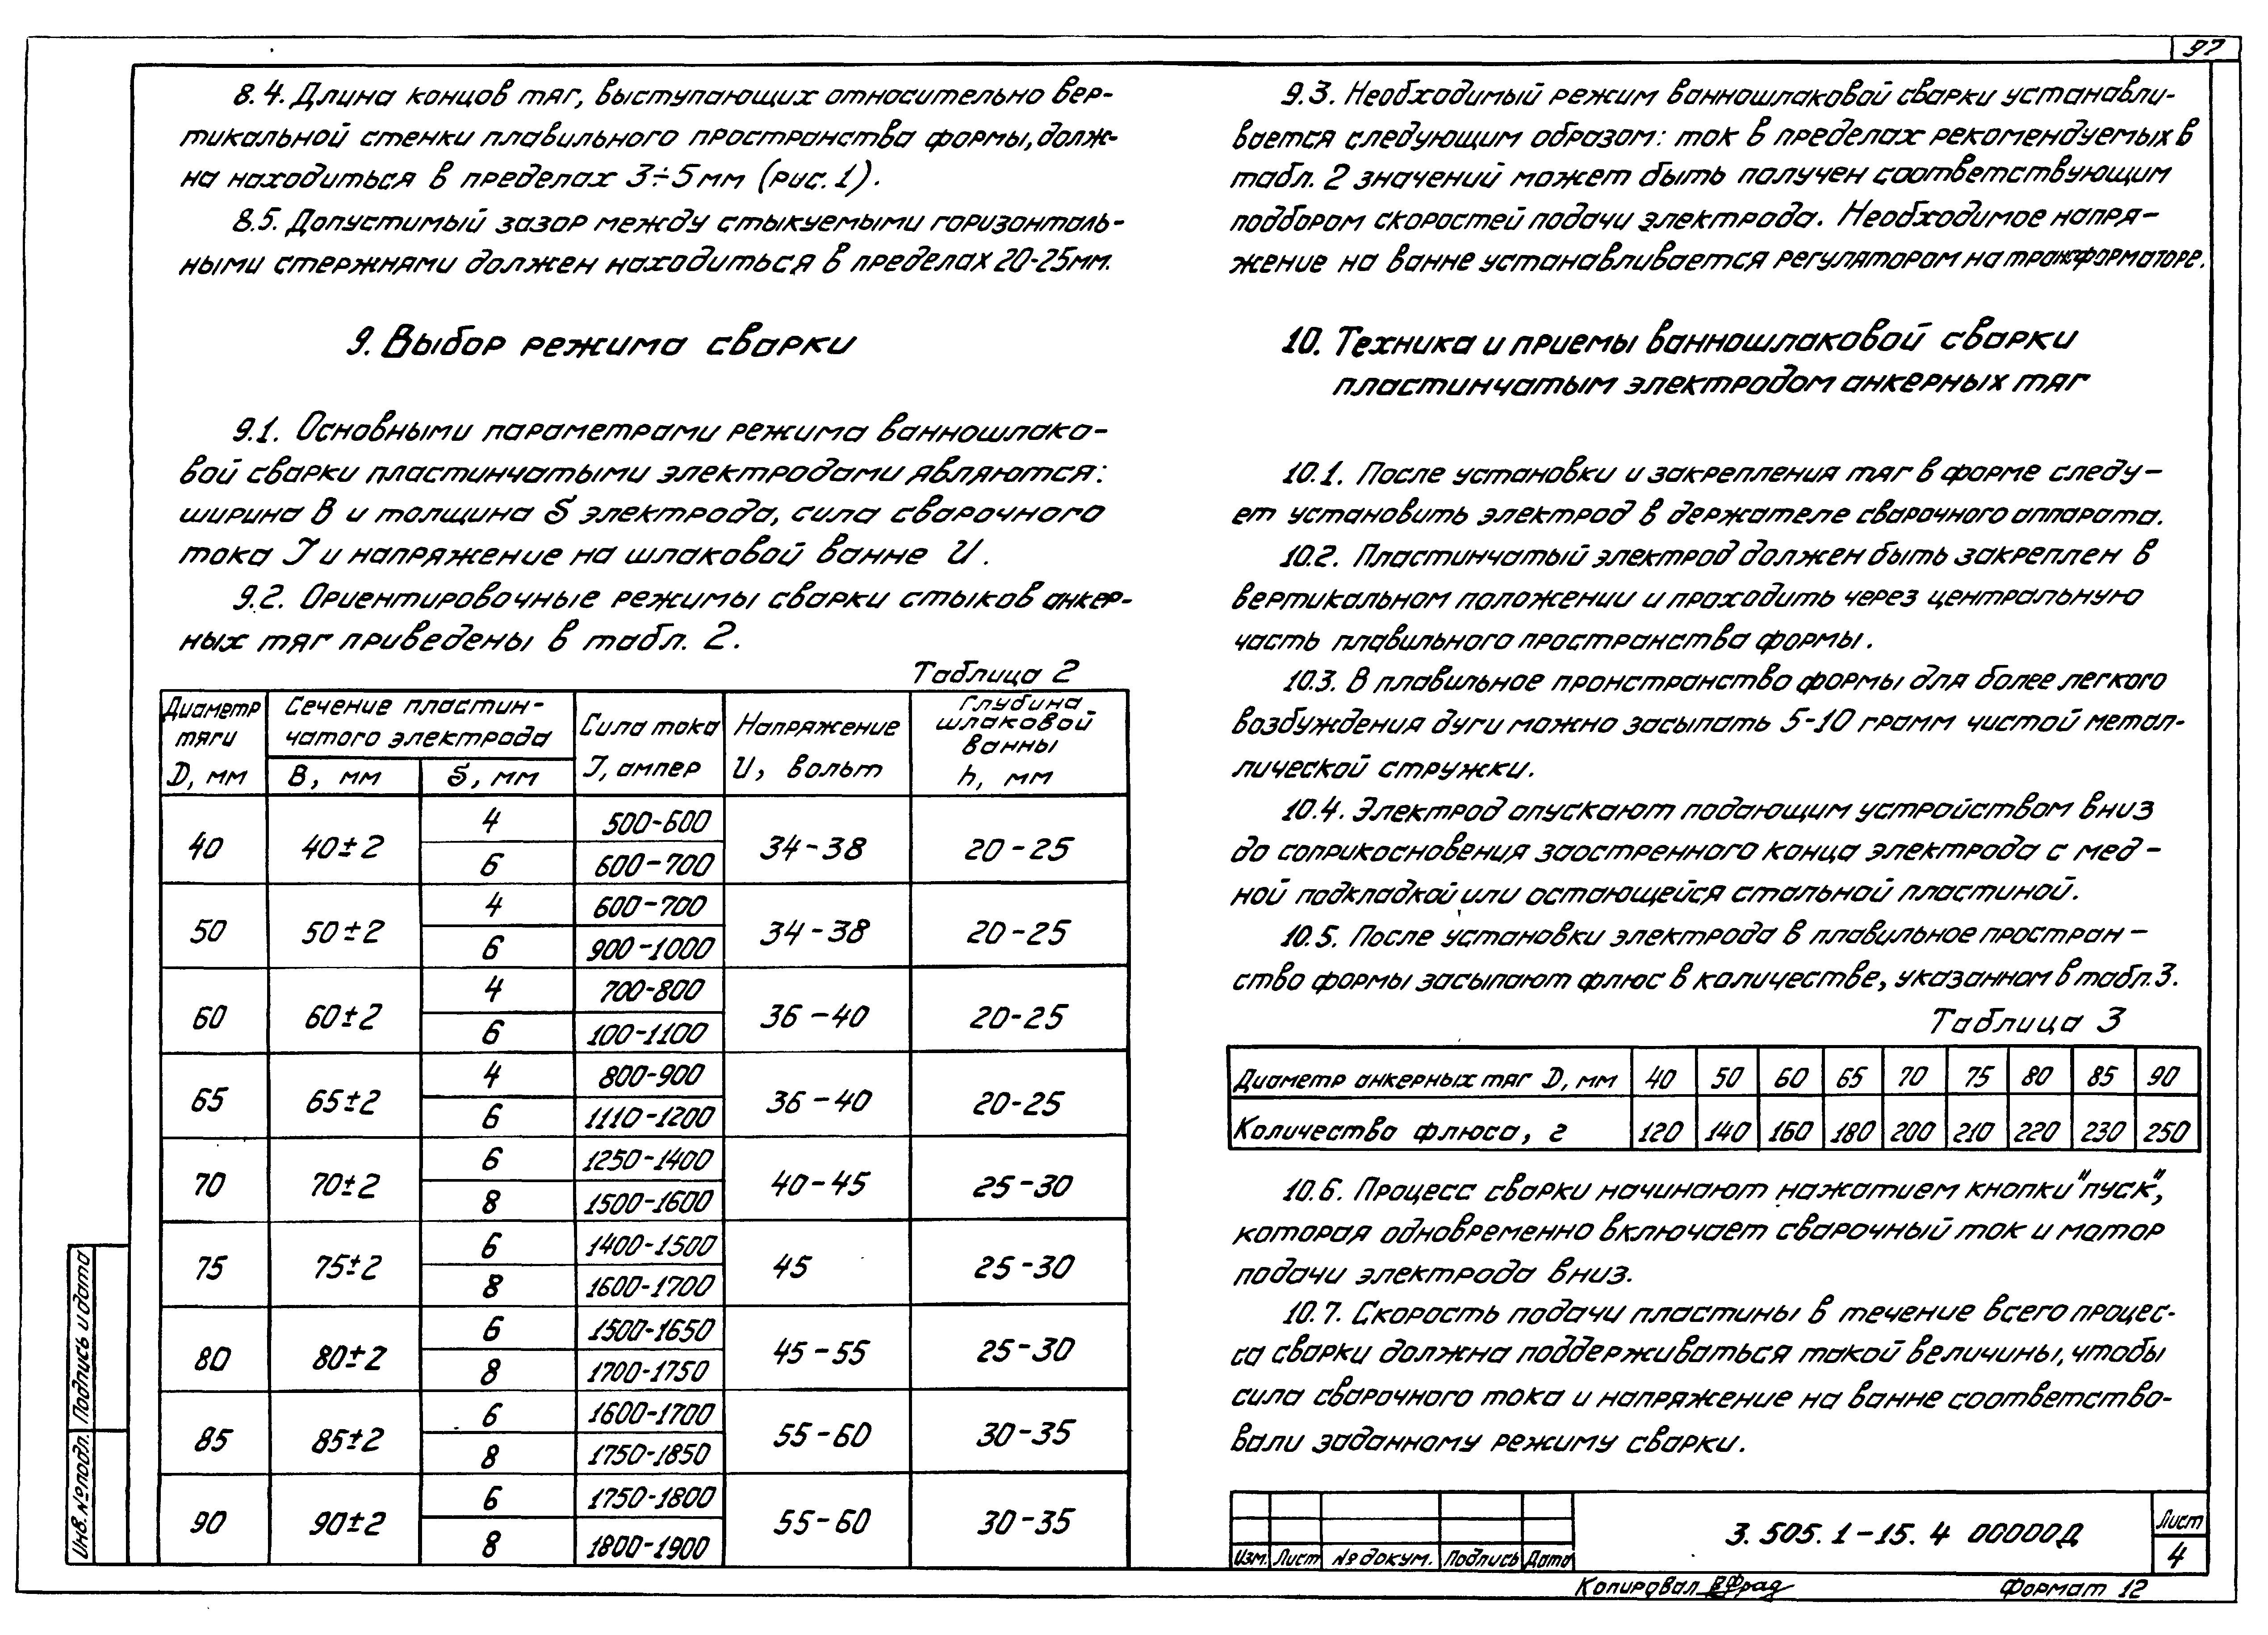 97
8.4. Длина концов тяг, выступающих относительно вер-
тикальной стенки плавильного пространства формы, долж-
на находиться в пределах 3÷5 мм (рис. 1).
8.5. Допустимый зазор между стыкуемыми горизонталь-
ными стержнями должен находиться в пределах 20-25мм.
9. Выбор режима сварки
9.1. Основными параметрами режима ванношлако-
вой сварки пластинчатыми электродами являются:
ширина В и толщина S электрода, сила сварочного
тока J и напряжение на шлаковой ванне U.
9.2. Ориентировочные режимы сварки стыков анкер-
ных тяг приведены в табл. 2.
Таблица 2
Диаметр тяги D, мм | Сечение пластин-чатого электрода | Сила тока J, ампер | Напряжение U, вольт | Глубина шлаковой ванны h, мм
В, мм | S, мм
40 | 40±2 | 4 | 500-600 | 34-38 | 20-25
6 | 600-700
50 | 50±2 | 4 | 600-700 | 34-38 | 20-25
6 | 900-1000
60 | 60±2 | 4 | 700-800 | 36-40 | 20-25
6 | 100-1100
65 | 65±2 | 4 | 800-900 | 36-40 | 20-25
6 | 1110-1200
70 | 70±2 | 6 | 1250-1400 | 40-45 | 25-30
8 | 1500-1600
75 | 75±2 | 6 | 1400-1500 | 45 | 25-30
8 | 1600-1700
80 | 80±2 | 6 | 1500-1650 | 45-55 | 25-30
8 | 1700-1750
85 | 85±2 | 6 | 1600-1700 | 55-60 | 30-35
8 | 1750-1850
90 | 90±2 | 6 | 1750-1800 | 55-60 | 30-35
8 | 1800-1900
9.3. Необходимый режим ванношлаковой сварки устанавли-
вается следующим образом: ток в пределах рекомендуемых в
табл. 2 значений может быть получен соответствующим
подбором скоростей подачи электрода. Необходимое напря-
жение на ванне устанавливается регулятором на трансформаторе.
10. Техника и приемы ванношлаковой сварки
пластинчатым электродом анкерных тяг
10.1. После установки и закрепления тяг в форме следу-
ет установить электрод в держателе сварочного аппарата.
10.2. Пластинчатый электрод должен быть закреплен в
вертикальном положении и проходить через центральную
часть плавильного пространства формы.
10.3. В плавильное пронстранство формы для более легкого
возбуждения дуги можно засыпать 5-10 грамм чистой метал-
лической стружки.
10.4. Электрод опускают подающим устройством вниз
до соприкосновения заостренного конца электрода с мед-
ной подкладкой или остающейся стальной пластиной.
10.5. После установки электрода в плавильное простран-
ство формы засыпают флюс в количестве, указанном в табл.3.
Таблица 3
Диаметр анкерных тяг D, мм | 40 | 50 | 60 | 65 | 70 | 75 | 80 | 85 | 90
Количество флюса, г | 120 | 140 | 160 | 180 | 200 | 210 | 220 | 230 | 250
10.6. Процесс сварки начинают нажатием кнопки "пуск",
которая одновременно включает сварочный ток и мотор
подачи электрода вниз.
10.7. Скорость подачи пластины в течение всего процес-
са сварки должна поддерживаться такой величины, чтобы
сила сварочного тока и напряжение на ванне соответство-
вали заданному режиму сварки.
Инв. № подл. Подпись и дата
Изм. Лист № докум. Подпись Дата
3.505.1-15.4 00000Д
Лист
4
Копировал
Формат 12